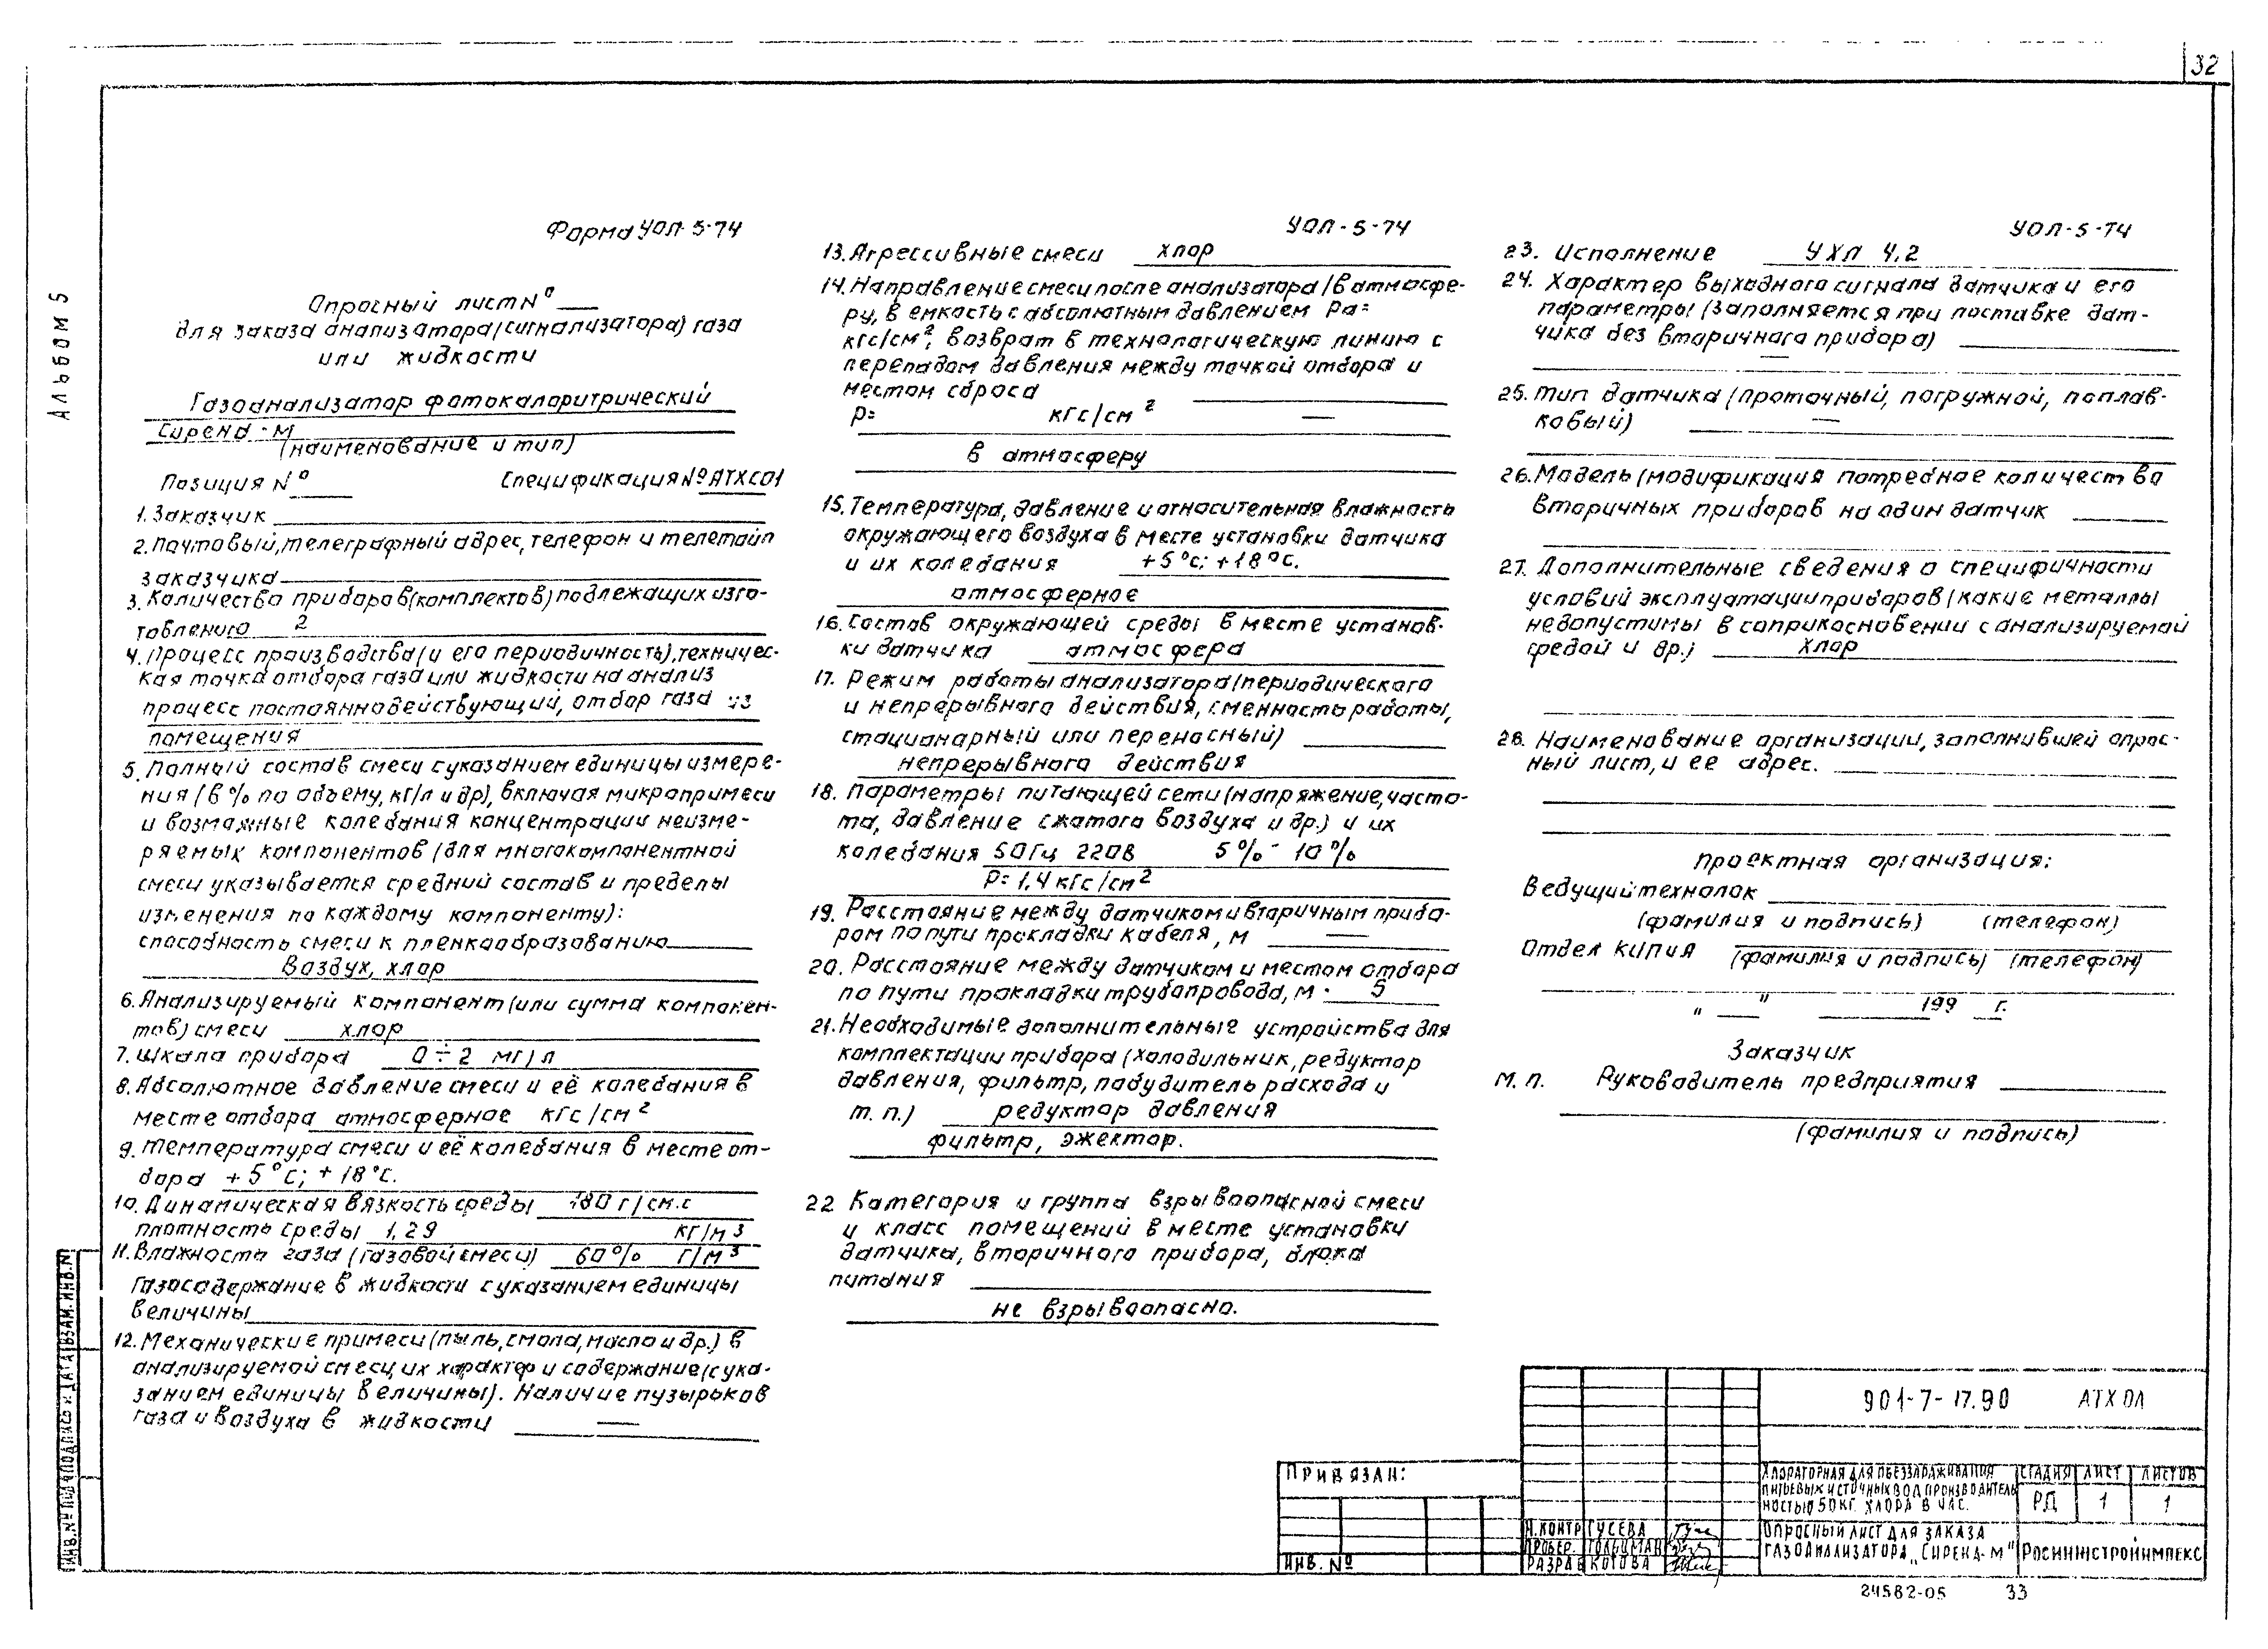 32
АЛЬБОМ 5
Форма УОЛ-5-74
Опросный лист №
для заказа анализатора (сигнализатора) газа
или жидкости
Газоанализатор фотоколоритрический
Сирена-М
(наименование и тип)
Позиция №
Спецификация № АТХСО1
1. Заказчик
2. Почтовый, телеграфный адрес, телефон и телетайп
заказчика
3. Количество приборов (комплектов) подлежащих изго-
товлению 2
4. Процесс производства (и его периодичность), техничес-
кая точка отбора газа или жидкости на анализ
процесс постояннодействующий, отбор газа из
помещения
5. Полный состав смеси с указанием единицы измере-
ния (в % по объему, кг/л и др), включая микропримеси
и возможные колебания концентрации неизме-
ряемых компонентов (для многокомпонентной
смеси указывается средний состав и пределы
изменения по каждому компоненту):
способность смеси к пленкообразованию
Воздух, хлор
6. Анализируемый компонент (или сумма компонен-
тов) смеси хлор
7. Шкала прибора 0÷2 мг/л
8. Абсолютное давление смеси и её колебания в
месте отбора атмосферное кгс/см²
9. Температура смеси и её колебания в месте от-
бора +5°С; +18°С.
10. Динамическая вязкость среды 180 г/см.с
плотность среды 1,29 кг/м³
11. Влажность газа (газовой смеси) 60% г/м³
Газосодержание в жидкости с указанием единицы
величины
12. Механические примеси (пыль, смола, масло и др.) в
анализируемой смеси, их характер и содержание (с ука-
занием единицы величины). Наличие пузырьков
газа и воздуха в жидкости —
УОЛ-5-74
13. Агрессивные смеси хлор
14. Направление смеси после анализатора (в атмосфе-
ру, в емкость с абсолютным давлением Pa=
кгс/см², возврат в технологическую линию с
перепадом давления между точкой отбора и
местом сброса
P= кгс/см² —
в атмосферу
15. Температура, давление и относительная влажность
окружающего воздуха в месте установки датчика
и их колебания +5°С; +18°С.
атмосферное
16. Состав окружающей среды в месте установ-
ки датчика атмосфера
17. Режим работы анализатора (периодического
и непрерывного действия, сменность работы,
стационарный или переносный)
непрерывного действия
18. Параметры питающей сети (напряжение, часто-
та, давление сжатого воздуха и др.) и их
колебания 50Гц 220В 5%-10%
P=1,4 кгс/см²
19. Расстояние между датчиком и вторичным прибо-
ром по пути прокладки кабеля, м —
20. Расстояние между датчиком и местом отбора
по пути прокладки трубопровода, м. 5
21. Необходимые дополнительные устройства для
комплектации прибора (холодильник, редуктор
давления, фильтр, побудитель расхода и
т.п.) редуктор давления
фильтр, эжектор.
22 Категория и группа взрывоопасной смеси
и класс помещений в месте установки
датчика, вторичного прибора, блока
питания
не взрывоопасно.
УОЛ-5-74
23. Исполнение УХЛ 4.2
24. Характер выходного сигнала датчика и его
параметры (заполняется при поставке дат-
чика без вторичного прибора)
—
25. Тип датчика (проточный, погружной, поплав-
ковый) —
26. Модель (модификация потребное количество
вторичных приборов на один датчик
27. Дополнительные сведения о специфичности
условий эксплуатации приборов (какие металлы
недопустимы в соприкосновении с анализируемой
средой и др.) хлор
28. Наименование организации, заполнившей опрос-
ный лист, и ее адрес.
Проектная организация:
Ведущий технолог
(фамилия и подпись) (телефон)
Отдел КИПиЯ
(фамилия и подпись) (телефон)
" " 199 г.
Заказчик
М.П. Руководитель предприятия
(фамилия и подпись)
ИНВ.№ ПОДЛ ПОДПИСЬ И ДАТА ВЗАМ.ИНВ.№
ПРИВЯЗАН:
ИНВ. №
901-7-17.90 АТХ ОЛ
ХЛОРАТОРНАЯ ДЛЯ ОБЕЗЗАРАЖИВАНИЯ
ПИТЬЕВЫХ И СТОЧНЫХ ВОД ПРОИЗВОДИТЕЛЬ
НОСТЬЮ 50 КГ. ХЛОРА В ЧАС.
СТАДИЯ ЛИСТ ЛИСТОВ
РД 1 1
Н.КОНТР ГУСЕВА
ПРОВЕР. ГОЛЬЦМАН
РАЗРАБ КОТОВА
ОПРОСНЫЙ ЛИСТ ДЛЯ ЗАКАЗА
ГАЗОАНАЛИЗАТОРА „СИРЕНА-М"
РОСИНЖСТРОЙИМПЕКС
24582-05 33